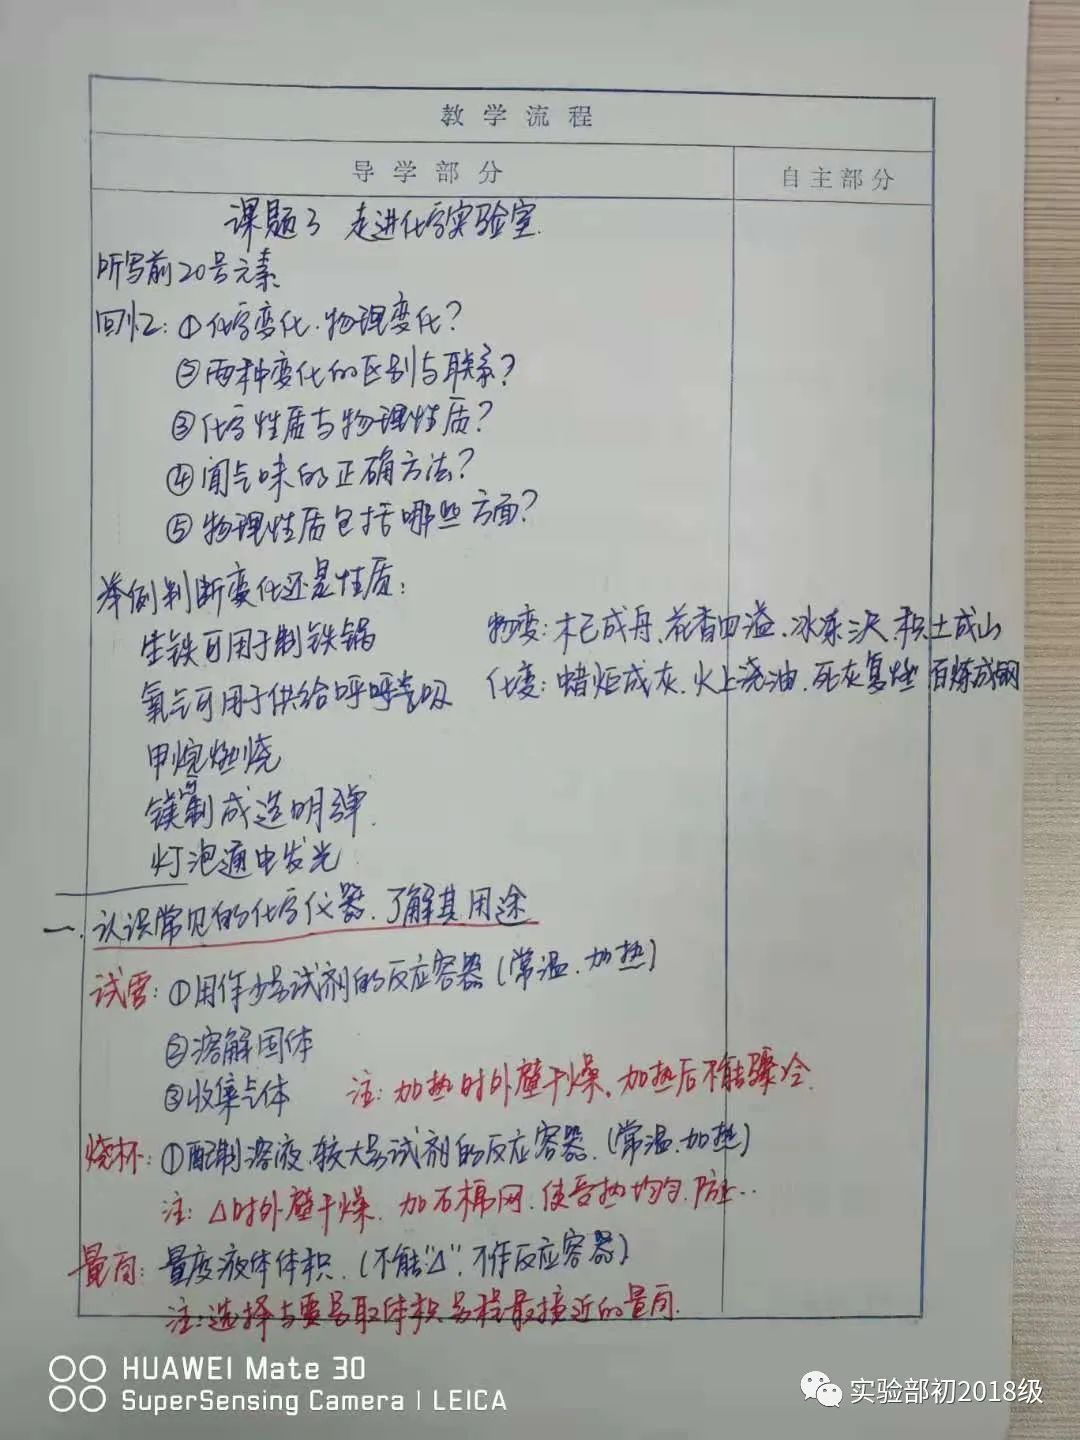 教学流程
导学部分
自主部分
课题3 走进化学实验室.
听写前20号元素
回忆: ①化学变化.物理变化?
②两种变化的区别与联系?
③化学性质与物理性质?
④闻气味的正确方法?
⑤物理性质包括哪些方面?
举例判断变化还是性质:
生铁可用于制铁锅
物变: 木已成舟.花香四溢.冰冻三尺.积土成山
氧气可用于供给呼吸
化变: 蜡炬成灰.火上浇油.死灰复燃 百炼成钢
甲烷燃烧
镁可制成造明弹.
灯泡通电发光
一.认识常见的化学仪器.了解其用途
试管: ①用作少量试剂的反应容器(常温.加热)
②溶解固体
③收集气体 注: 加热时外壁干燥.加热后不能骤冷.
烧杯: ①配制溶液.较大量试剂的反应容器.(常温.加热)
注: △时外壁干燥.加石棉网.使受热均匀.防止..
量筒: 量度液体体积.(不能"△".不作反应容器)
注:选择与要量取体积量程最接近的量筒.
HUAWEI Mate 30
SuperSensing Camera | LEICA
实验部初2018级